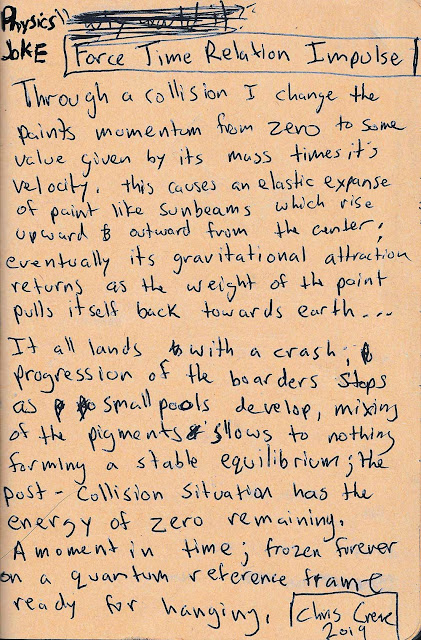 Physics
JOKE
Force Time Relation Impulse
Through a collision I change the
paints momentum from zero to some
value given by its mass times it's
velocity. this causes an elastic expanse
of paint like sunbeams which rise
upward & outward from the center;
eventually its gravitational attraction
returns as the weight of the paint
pulls itself back towards earth...
It all lands with a crash;
progression of the boarders stops
as small pools develop, mixing
of the pigments slows to nothing
forming a stable equilibrium; the
post-collision situation has the
energy of zero remaining.
A moment in time; frozen forever
on a quantum reference frame
ready for hanging.
Chris
2019